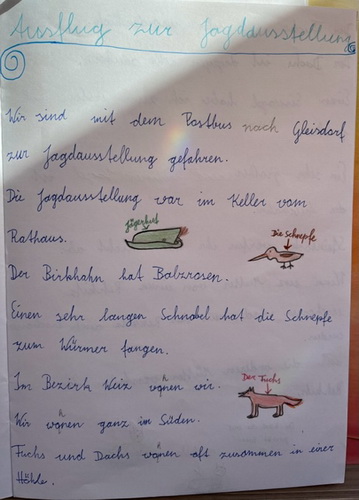 Ausflug zur Jagdausstellung
Wir sind mit dem Postbus nach Gleisdorf
zur Jagdausstellung gefahren.
Die Jagdausstellung war im Keller vom
Jägerhut
Die Schnepfe
Rathaus.
Der Birkhahn hat Balzrosen.
Einen sehr langen Schnabel hat die Schnepfe
zum Würmer fangen.
Der Fuchs
Im Bezirk Weiz wohnen wir.
Wir wohnen ganz im Süden.
Fuchs und Dachs wohnen oft zusammen in einer
Höhle.